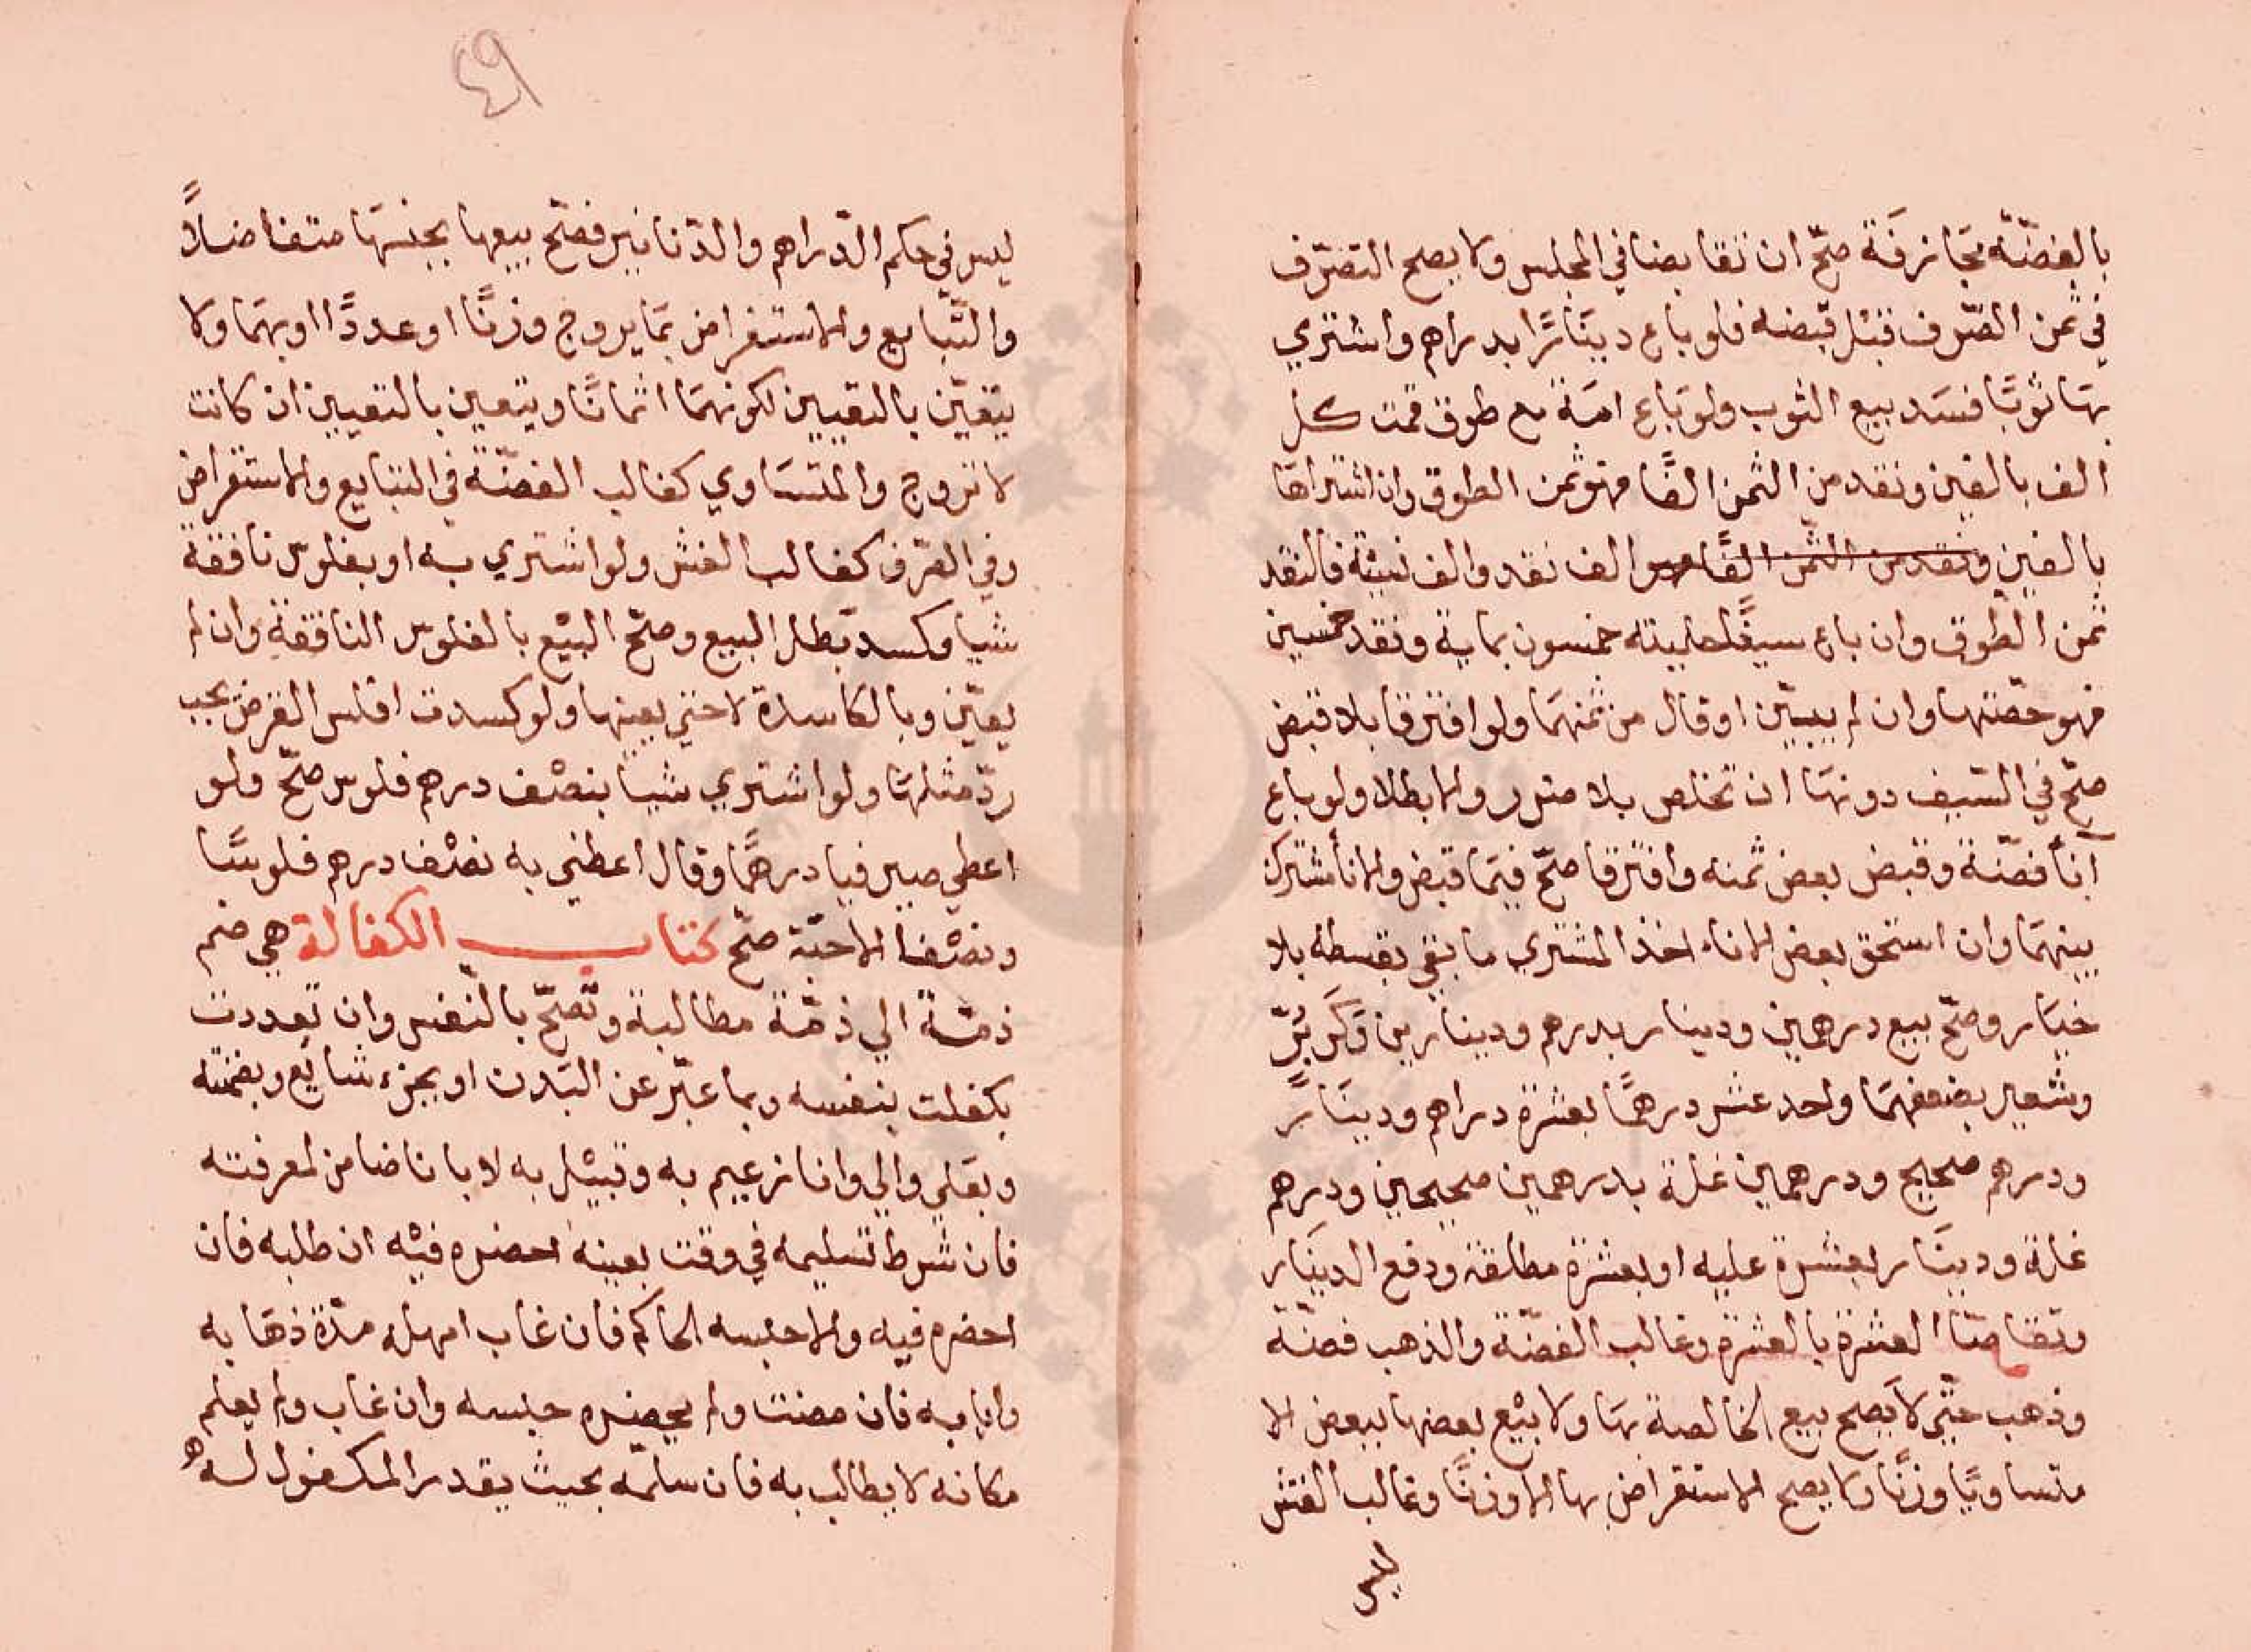 بالفضّة مجَازفَة صَحّ ان تقابضا في المجلس ولا يصح التصَرّف
في ثمن الصّرف قبْل قبضه فلو باع دينَارًا بدراهم واشتري
بهَا ثوبًا فسَد بيع الثوب ولو بَاع امَة مع طوق قيمت كل
الف بالفين ونقد من الثمن الفًا فهو ثمن الطوق وان اشتراهَا
بالفين ونقد من الثّمن الفًا فهو الف نقد والف نسيئة فالنقد
ثمن الطّوق وان باع سيفًا حليته خمسون بماية ونقد خمسين
فهو حصّتها وان لم يبيّن او قال من ثمنهمَا ولو افترقا بلا قبض
صحّ في السّيف دونهَا ان تخلص بلا ضرر والا بطلا ولو باع
آناً فضّة وقبض بعض ثمنه وافترقا صحّ فيمَا قبض والانأ مشترك
بينهمَا وان استحق بعض الاناء اخذ المشتري ما بقي بقسطه بلا
خيَار وصَحّ بيع درهمين ودينار بدرهم ودينارين وكر بُرّ
وشعير بضعفهمَا واحد عشر درهمًا بعشرة دراهم ودينَارً
ودرهم صحيح ودرهمين غلة بدرهمين صحيحين ودرهم
غلة ودينَار بعشرة عليه او بعشرة مطلقة ودفع الدينَار
وتقاصّا العشرة بالعشرة وغالب الفضّة والذهب فضّة
وذهب حتّي لا يصح بيع الخالصة بهَا ولا بيْع بعضها ببعض الا
متساويًا وزنًا ولا يصح الاستقراض بها الا وزنًا وغالب الغش
ليس
٤٩
ليس في حكم الدّراهم والدّنانير فصَحّ بيعها بجنسهَا متفاضلاً
والتّبايع والاستقراض بمَا يروج وزنًا او عددًا او بهمَا ولا
يتعيّن بالتعيين لكونهمَا اثمانًا ويتعين بالتعيين ان كانت
لا تروج والمتسَاوي كغالب الفضّة في التبايع والاستقراض
وفي الصّرف كغالب الغش ولو اشتري به او بفلوس نافقة
شيا وكسد بَطل البيع وصحّ البيْع بالفلوس النافقة وان لم
يعيّن وبالكاسدة لا حتي يعينها ولو كسدت افلس القرض يجب
ردّ مثلهَا ولو اشتري شيا بنصْف درهم فلوس صَحّ ولو
اعطي صيرفيا درهمًا وقال اعطني به نصْف درهم فلوسًا
ونصْفا الاحبّة صَحّ كتاب الكفالة هي ضم
ذمّة الي ذمّة مطالبة وتَصحّ بالنّفس وان تعددت
بكفلت بنفسه وبما عبّر عن البَدن او بجزء شايع وبضمنته
وبعَلي والي وانا زعيم به وقبيْل به لا بانا ضامن لمعرفته
فان شرط تسليمه في وقت بعينه احضره فيْه ان طلبه فان
احضره فيه والا حبسه الحاكم فان غاب امهله مدّة ذهَابه
وايابه فان مضت ولم يحضره حبسه وان غاب ولم يعلم
مكانه لا يطالب به فان سلمّه بحيث يقدر المكفول له